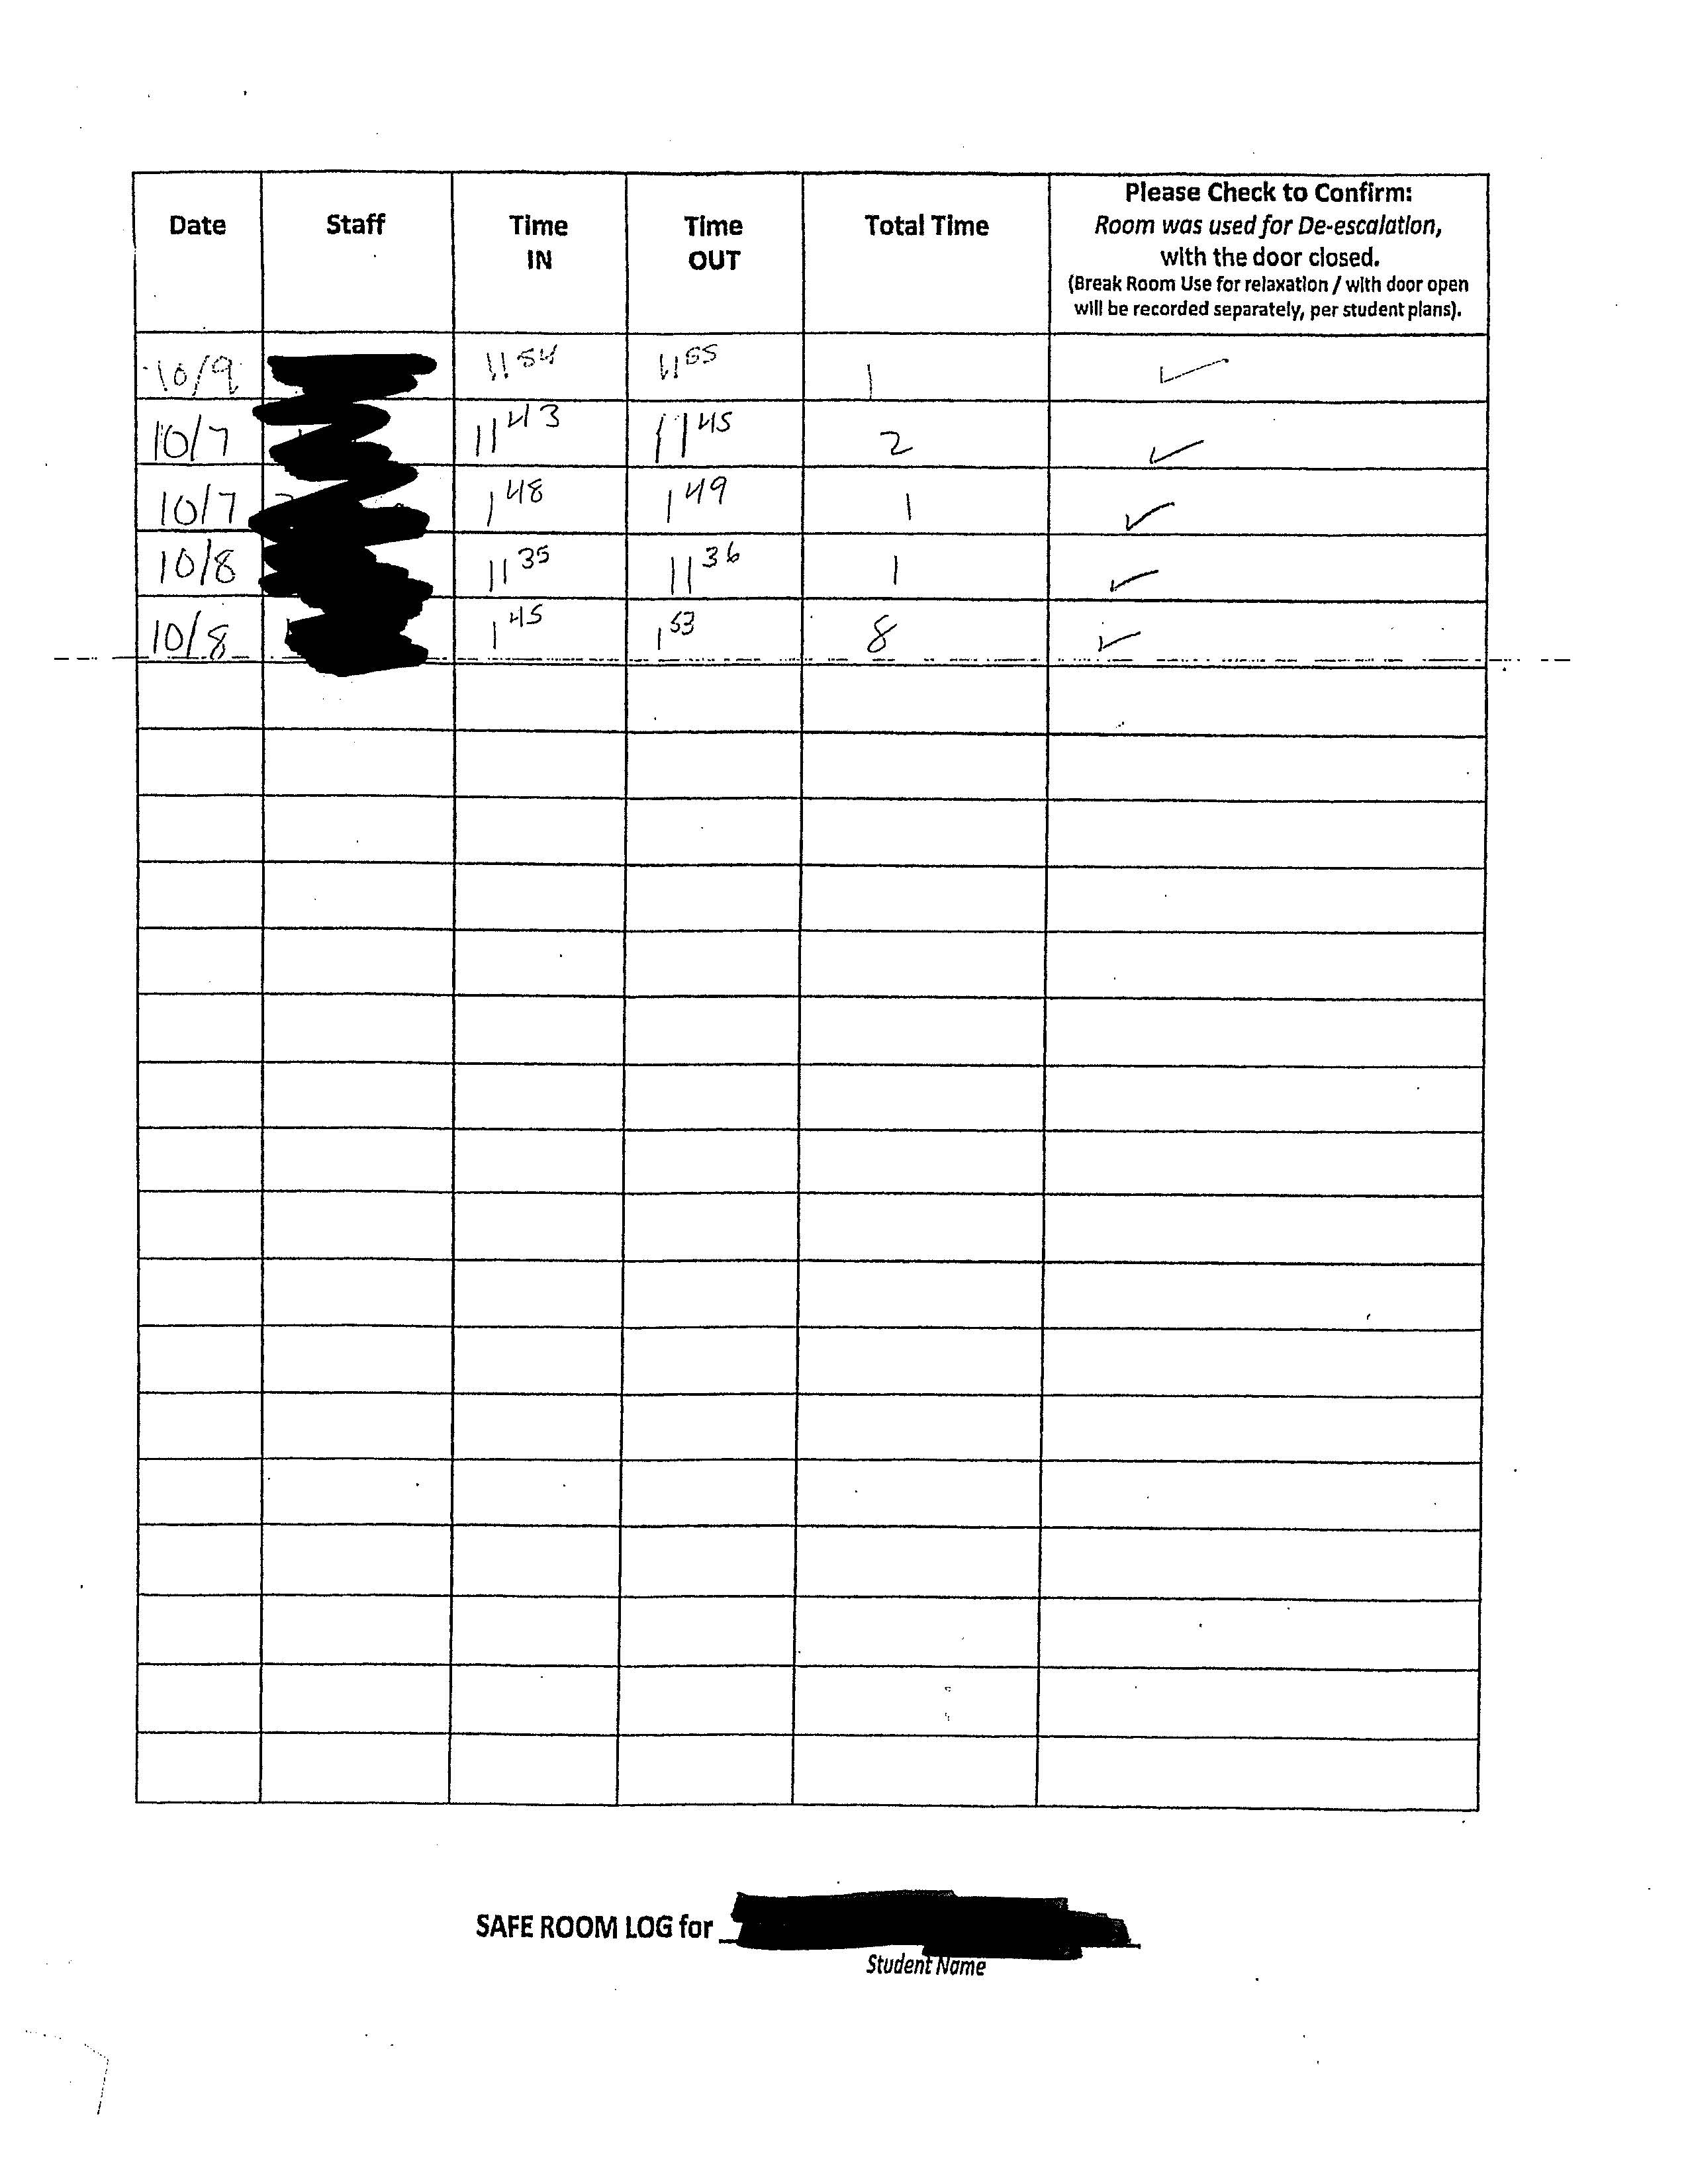 Date Staff Time IN Time OUT Total Time Please Check to Confirm:
Room was used for De-escalation,
with the door closed.
(Break Room Use for relaxation / with door open
will be recorded separately, per student plans).
10/9 11 54 11 55 1 ✓
10/7 11 43 11 45 2 ✓
10/7 1 48 1 49 1 ✓
10/8 11 35 11 36 1 ✓
10/8 1 45 1 53 8 ✓
SAFE ROOM LOG for
Student Name